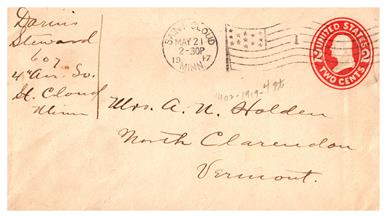 Darius
Steward
607
4th Av. So.
St. Cloud
Minn
SAINT CLOUD
MAY 21
2-30P
1917
MINN.
1
UNITED STATES
2 2
TWO CENTS
Mrs. A. N. Holden
North Clarendon
Vermont.